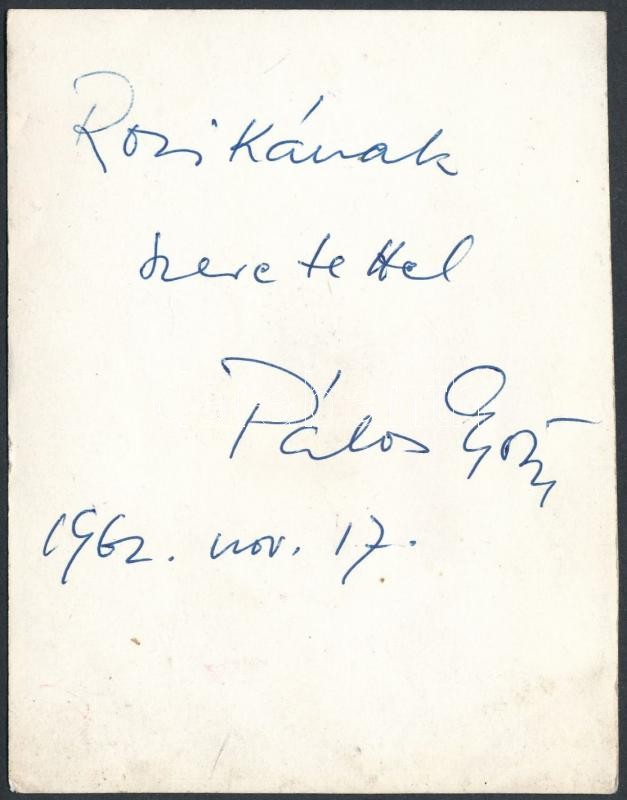 Rozikának
szeretettel
Pálos György
1962. nov. 17.